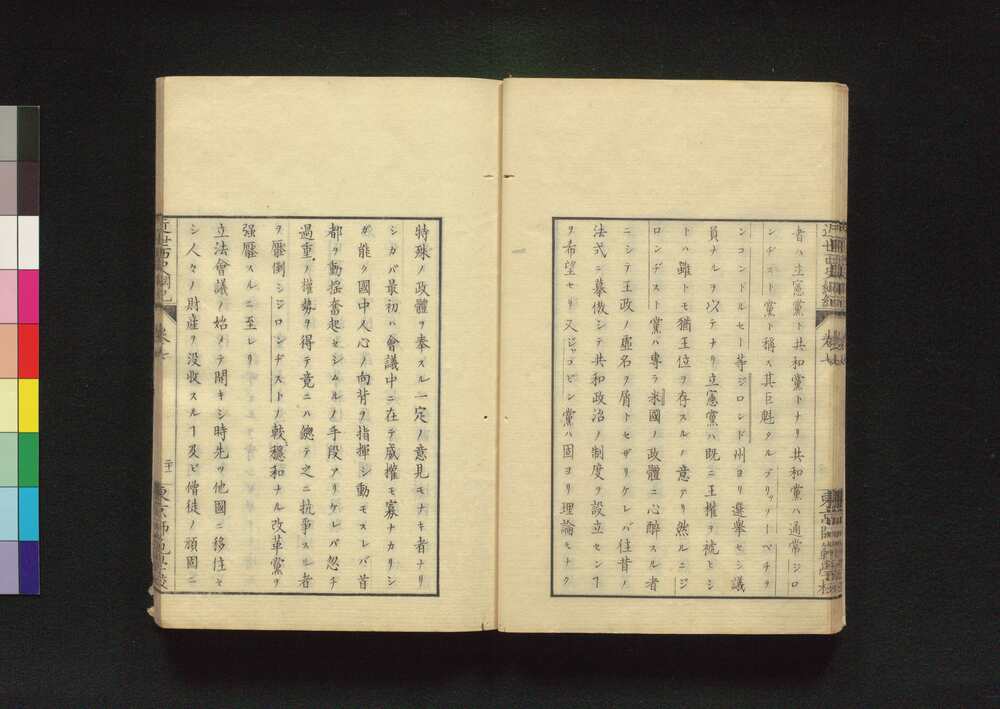 者ハ立憲黨ト共和黨トナリ共和黨ハ通常ジロ
ンヂスト黨ト稱ス其巨魁タルブリッソーペチヲ
ンコンドルセー等ジロンド州ヨリ選擧セシ議
員ナルヲ以テナリ立憲黨ハ既ニ王權ヲ褫ヒシ
トハ雖トモ猶王位ヲ存スルノ意アリ然ルニジ
ロンヂスト黨ハ專ラ米國ノ政體ニ心醉スル者
ニシテ王政ノ虛名ヲ屑トセザリケレバ往昔ノ
法式ニ摹倣シテ共和政治ノ制度ヲ設立センヿ
ヲ希望セリ又ジャコビン黨ハ固ヨリ理論モナク
特殊ノ政體ヲ奉スル一定ノ意見モナキ者ナリ
シカバ最初ハ會議中ニ在テ威權モ寡ナカリシ
ガ能ク國中人心ノ向背ヲ指揮シ動モスレバ昔
都ヲ動搖奮起セシムルノ手段アリケレバ忽チ
過重ノ權勢ヲ得テ竟ニハ總テ之ニ抗爭スル者
ヲ壓倒シジロンヂストノ較穩和ナル改革黨ヲ
强壓スルニ至レリ
立法會議ノ始メテ開キシ時先ツ他國ニ移住セ
シ人々ノ財產ヲ沒收スルヿ及ビ僧徒ノ頑固ニ
近世西史綱紀
卷七
二十一
東京師範學校